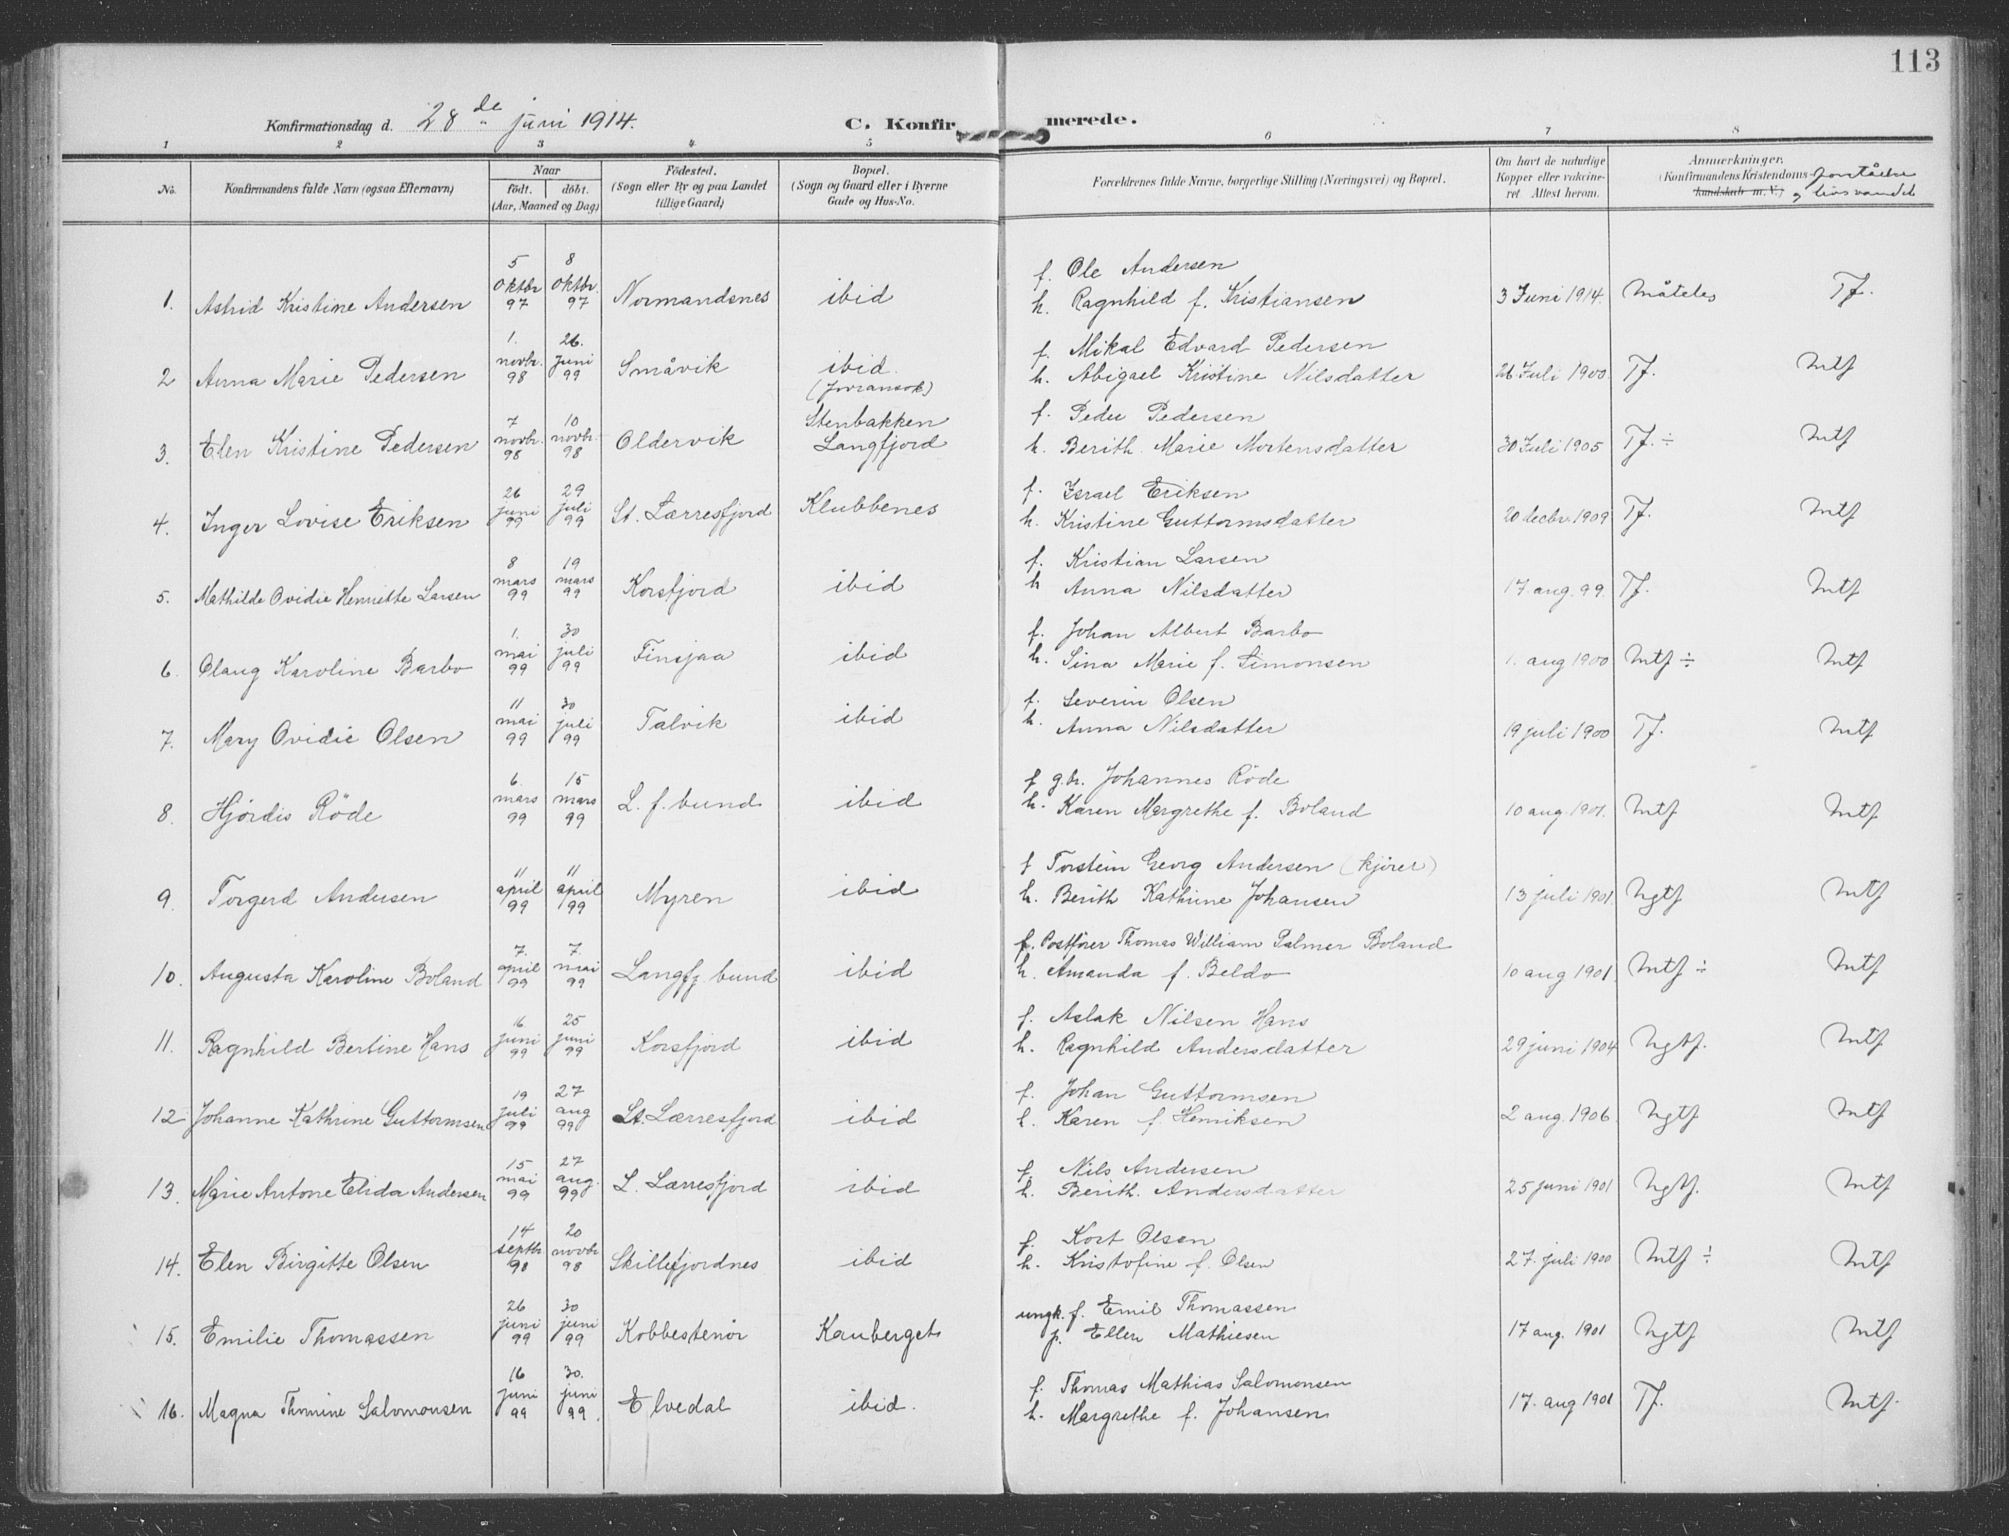 113
Konfirmationsdag d. 28de juni 1914. C. Konfirmerede.
1 2 3 4 5 6 7 8
No. Konfirmandens fulde Navn (ogsaa Efternavn) Naar født. døbt. (Aar, Maaned og Dag) Fødested. (Sogn eller By og paa Landet tillige Gaard) Bopæl. (Sogn og Gaard eller i Byerne Gade og Hus-No. Forældrenes fulde Navne, borgerlige Stilling (Næringsvei) og Bopæl. Om havt de naturlige Kopper eller vakcineret. Attest herom. Anmærkninger. (Konfirmandens Kristendoms-kundskab m. V.) forståelse og livsvandel
1. Astrid Kristine Andersen 5 Oktbr 97 8 Oktbr. 97 Normandsnes ibid f. Ole Andersen
h. Ragnhild f. Kristiansen 3 Juni 1914. Måteles Tf.
2 Anna Marie Pedersen 1. novbr. 98 26. Juni 99 Småvik ibid. f. Mikal Edvard Pedersen
h. Abigael Kristine Nilsdatter 26 Juli 1900. Tf. Mtf
3. Elen Kristine Pedersen 7 novbr. 98 10 novbr. 98 Oldervik Stenbakken Langfjord f. Peder Pedersen
h. Berith Marie Mortensdatter 30 Juli 1905 Tf. ÷ Mtf
4. Inger Lovise Eriksen 26 juni 99 29 juli 99 St. Lærresfjord Klubbenes f. Israel Eriksen
h. Kristine Guttormsdatter 20 decbr. 1909 Tf. Mtf
5. Mathilde Ovidie Henriette Larsen 8 mars 99 19 mars 99 Korsfjord ibid f. Kristian Larsen
h Anna Nilsdatter 17. aug. 99. Tf. Mtf
6. Olaug Karoline Barbo 1. mai 99 30 juli 99 Finsjaa ibid f. Johan Albert Barbo
h. Sina Marie f. Simonsen 1. aug 1900 Mtf ÷ Mtf
7. Mary Ovidie Olsen 11 mai 99 30 juli 99 Talvik ibid f. Severin Olsen
h. Anna Nilsdatter 19 juli 1900 Tf. Mtf
8. Hjørdis Røde 6. mars 99 15 mars 99 L. f. bund ibid f g.br. Johannes Røde
h. Karen Margrethe f. Boland 10 aug. 1901. Mtf Mtf
9. Torgerd Andersen 11 april 99 11 april 99 Myren ibid f Torstein Georg Andersen (kjører)
h. Berith Kathrine Johansen 13 juli 1901. Ngtf Mtf
10. Augusta Karoline Boland 7. april 99 7. mai 99 Langfj. bund ibid f. Postfører Thomas William Palmer Boland
h. Amanda f. Beldo 10 aug 1901. Mtf ÷ Mtf
11. Ragnhild Bertine Hans 16 juni 99 25 juni 99 Korsfjord ibid f. Aslak Nilsen Hans
h. Ragnhild Andersdatter 29 juni 1904 Ngtf. Mtf
12 Johanne Kathrine Guttormsen 19 juli 99 27 aug 99 St. Lærresfjord ibid f. Johan Guttormsen
h. Karen f. Henriksen 2 aug. 1906 Ngtf Mtf
13. Marie Antone Elida Andersen 15 mai 99 27 aug. 99 L. Lærresfjord ibid f. Nils Andersen
h. Berith. Andersdatter 25 juni 1901 Ngtf. Mtf
14. Elen Birgitte Olsen 14 septbr 98 20 novbr 98 Skillefjordnes ibid f. Kort Olsen
h. Kristofine f. Olsen 27. juli 1900 Mtf ÷ Mtf
15. Emilie Thomassen 26 juni 99 30 juni 99 Kobbestenør Kauberget ungk. f. Emil Thomassen
p. Ellen Mathiesen 17 aug. 1901 Ngtf Mtf
16. Magna Thomine Salomonsen 16 juni 99 30. juni 99. Elvedal ibid. f. Thomas Mathias Salomonsen
h. Margrethe f. Johansen 17. aug 1901 Tf. Mtf.